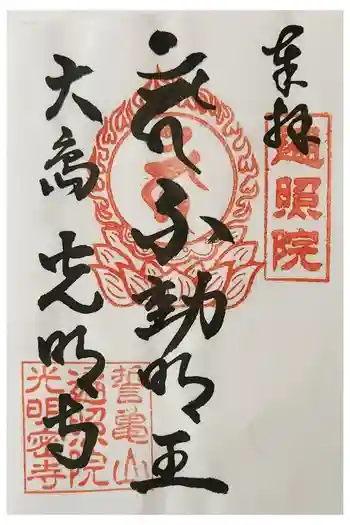 奉拝
遍照院
不動明王
大高 光明寺
誓亀山
遍照院
光明密寺